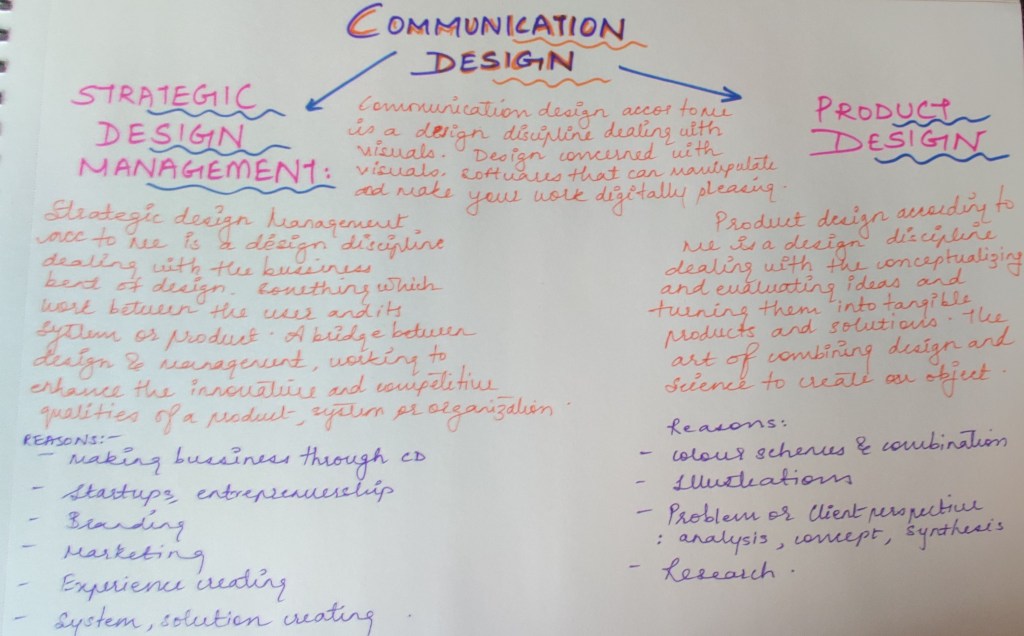 COMMUNICATION
DESIGN
STRATEGIC
DESIGN
MANAGEMENT:
Communication design accor to me
is a design discipline dealing with
visuals. Design concerned with
visuals. Softwares that can manipulate
and make your work digitally pleasing.
PRODUCT
DESIGN
Strategic design Management
acc to me is a design discipline
dealing with the bussiness
bent of design. Something which
work between the user and its
system or product. A bridge between
design & management, working to
enhance the innovative and competitive
qualities of a product, system or organization.
REASONS:-
- Making bussiness through CD
- Startups, entreprenuership
- Branding
- Marketing
- Experience creating
- System, solution creating.
Product design according to
me is a design discipline
dealing with the conceptualizing
and evaluating ideas and
turning them into tangible
products and solutions. The
art of combining design and
science to create an object.
Reasons:
- colour schemes & combination
- Illustrations
- Problem or Client perspective
: analysis, concept, synthesis
- Research.